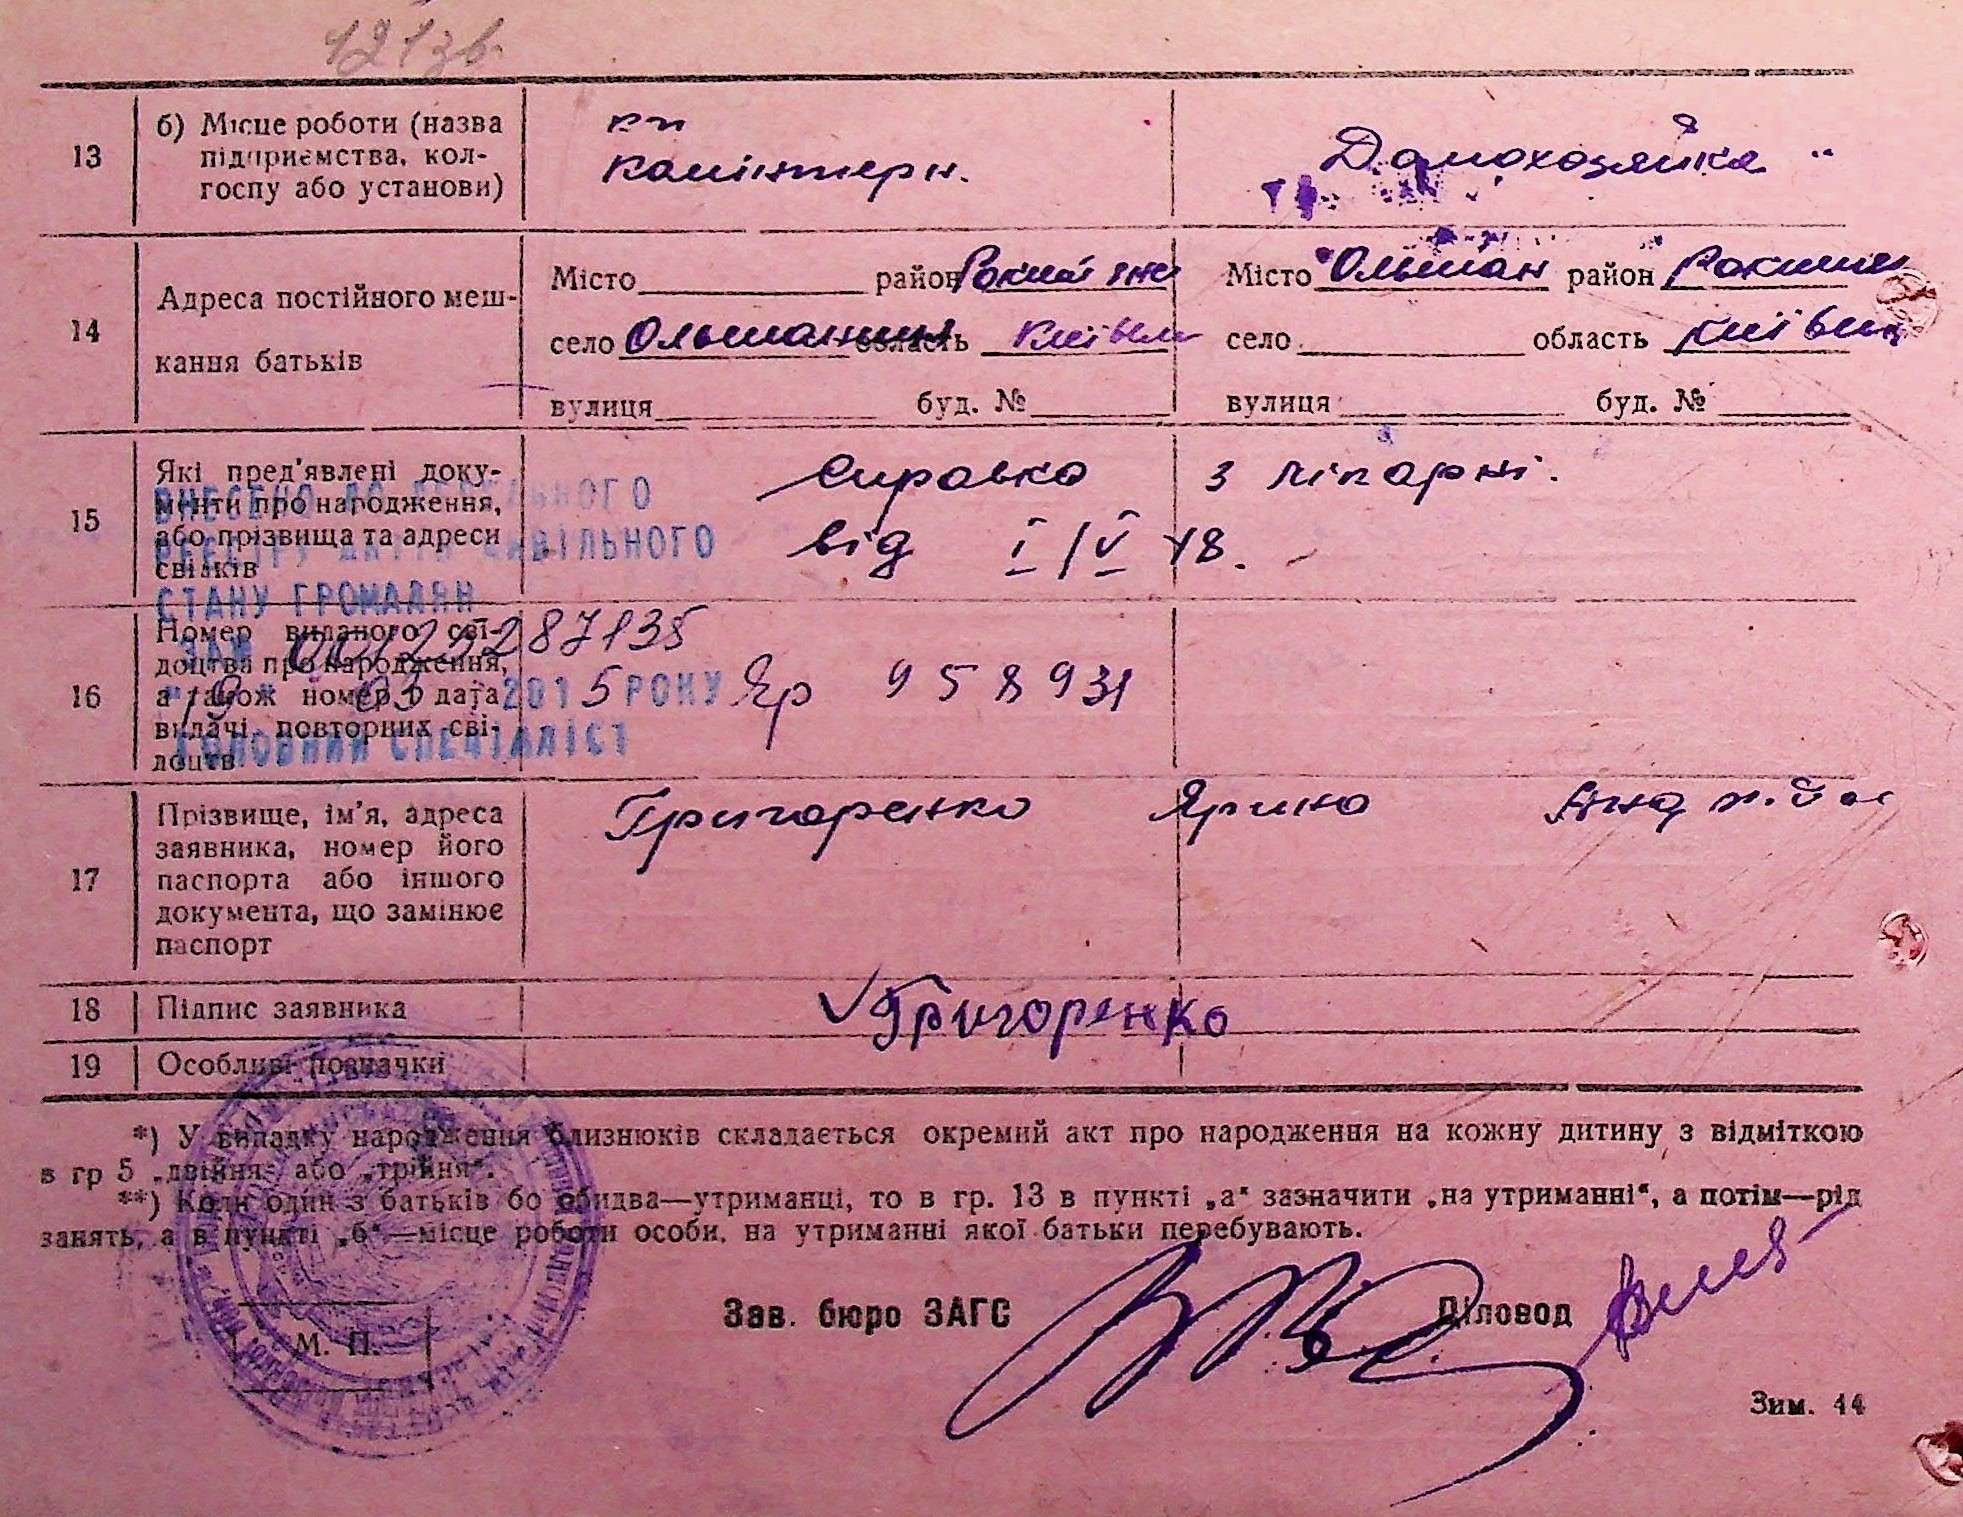 121зв.
13
б) Місце роботи (назва
підприємства, кол-
госпу або установи)
кп
Комінтерн.
Домохозяйка
14
Адреса постійного меш-
кання батьків
Місто район
село Ольшаниця область Київськ
вулиця буд. №
Місто Ольшан район Рокитян
село область Київськ
вулиця буд. №
15
Які пред'явлені доку-
менти про народження,
або прізвища та адреси
свідків
Справка з лікарні.
від I/V 48.
ВНЕСЕНО ДО ДЕРЖАВНОГО
РЕЄСТРУ АКТІВ ЦИВІЛЬНОГО
СТАНУ ГРОМАДЯН
ЗА № 00125287135
"19" 03 2015 РОКУ
ГОЛОВНИЙ СПЕЦІАЛІСТ
16
Номер виданого сві-
доцтва про народження,
а також номер і дата
видачі повторних сві-
доцтв
Яр 958931
17
Прізвище, ім'я, адреса
заявника, номер його
паспорта або іншого
документа, що замінює
паспорт
Григоренко Ярина
18
Підпис заявника
Григоренко
19
Особливі позначки
*) У випадку народження близнюків складається окремий акт про народження на кожну дитину з відміткою
в гр 5 „двійня" або „трійня".
**) Коли один з батьків бо обидва—утриманці, то в гр. 13 в пункті „а" зазначити „на утриманні", а потім—рід
занять, а в пункті „б"—місце роботи особи, на утриманні якої батьки перебувають.
Зав. бюро ЗАГС
Діловод
М. П.
Зим. 44